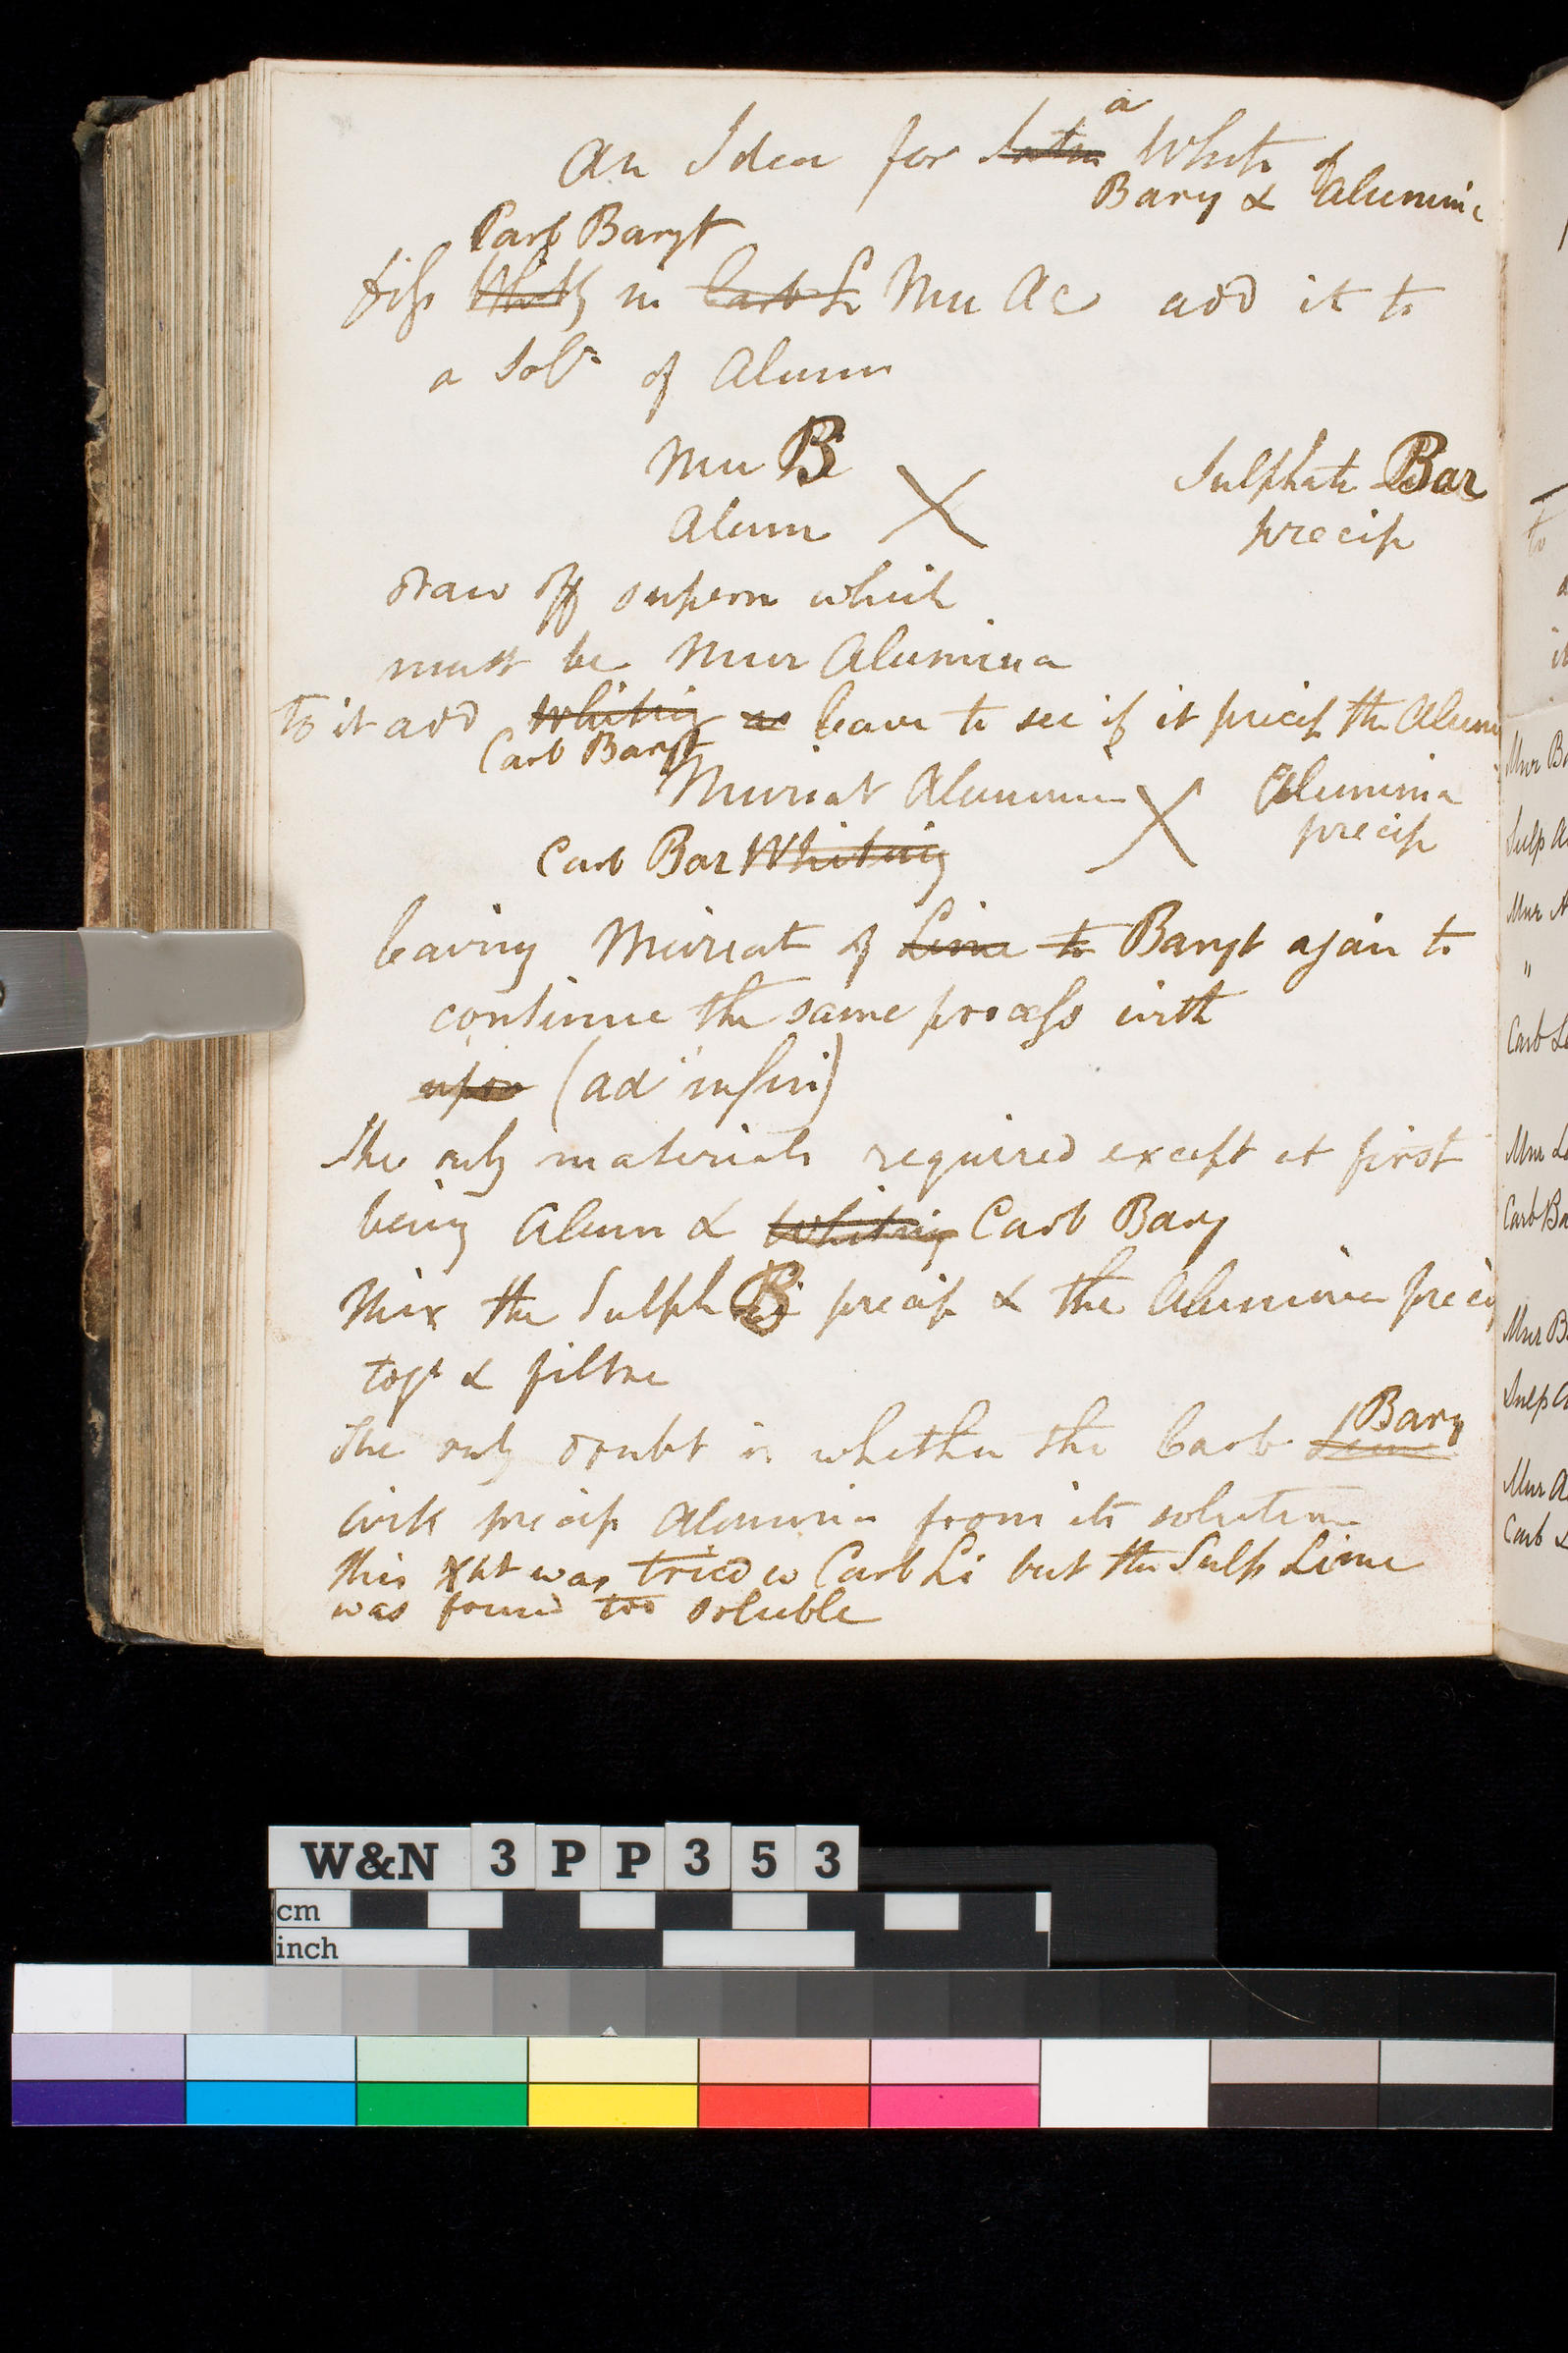 a
An Idea for Satin White of
Bary & Alumina
Carb Baryt
diss Whitg in Carb Li Mu Ac add it to
a Soln of Alum
Mu B Sulphate Bar
Alum precip
draw off supern which
must be Mur Alumina
To it add Whiting as leave to see if it precip the Alum
Carb Baryt
Muriat Alumina Alumina
precip
Carb Bar Whiting
leaving Muriat of Lime to Baryt again to
continue the same process with
upon (ad infin)
The only materials required except at first
being Alum & Whiting Carb Bary
Mix the Sulph B precip & the Alumina precip
togr & filtre
Bary
The only doubt is whether the Carb Lime
will precip Alumina from its solution
This Xpt was tried w Carb Li but the Sulp Lime
was found too soluble
to
Mur Ba
Sulp A
Mur A
"
Carb L
Mur L
Carb Ba
Mur B
Sulp A
Mur A
Carb L
W&N 3PP353
cm
inch